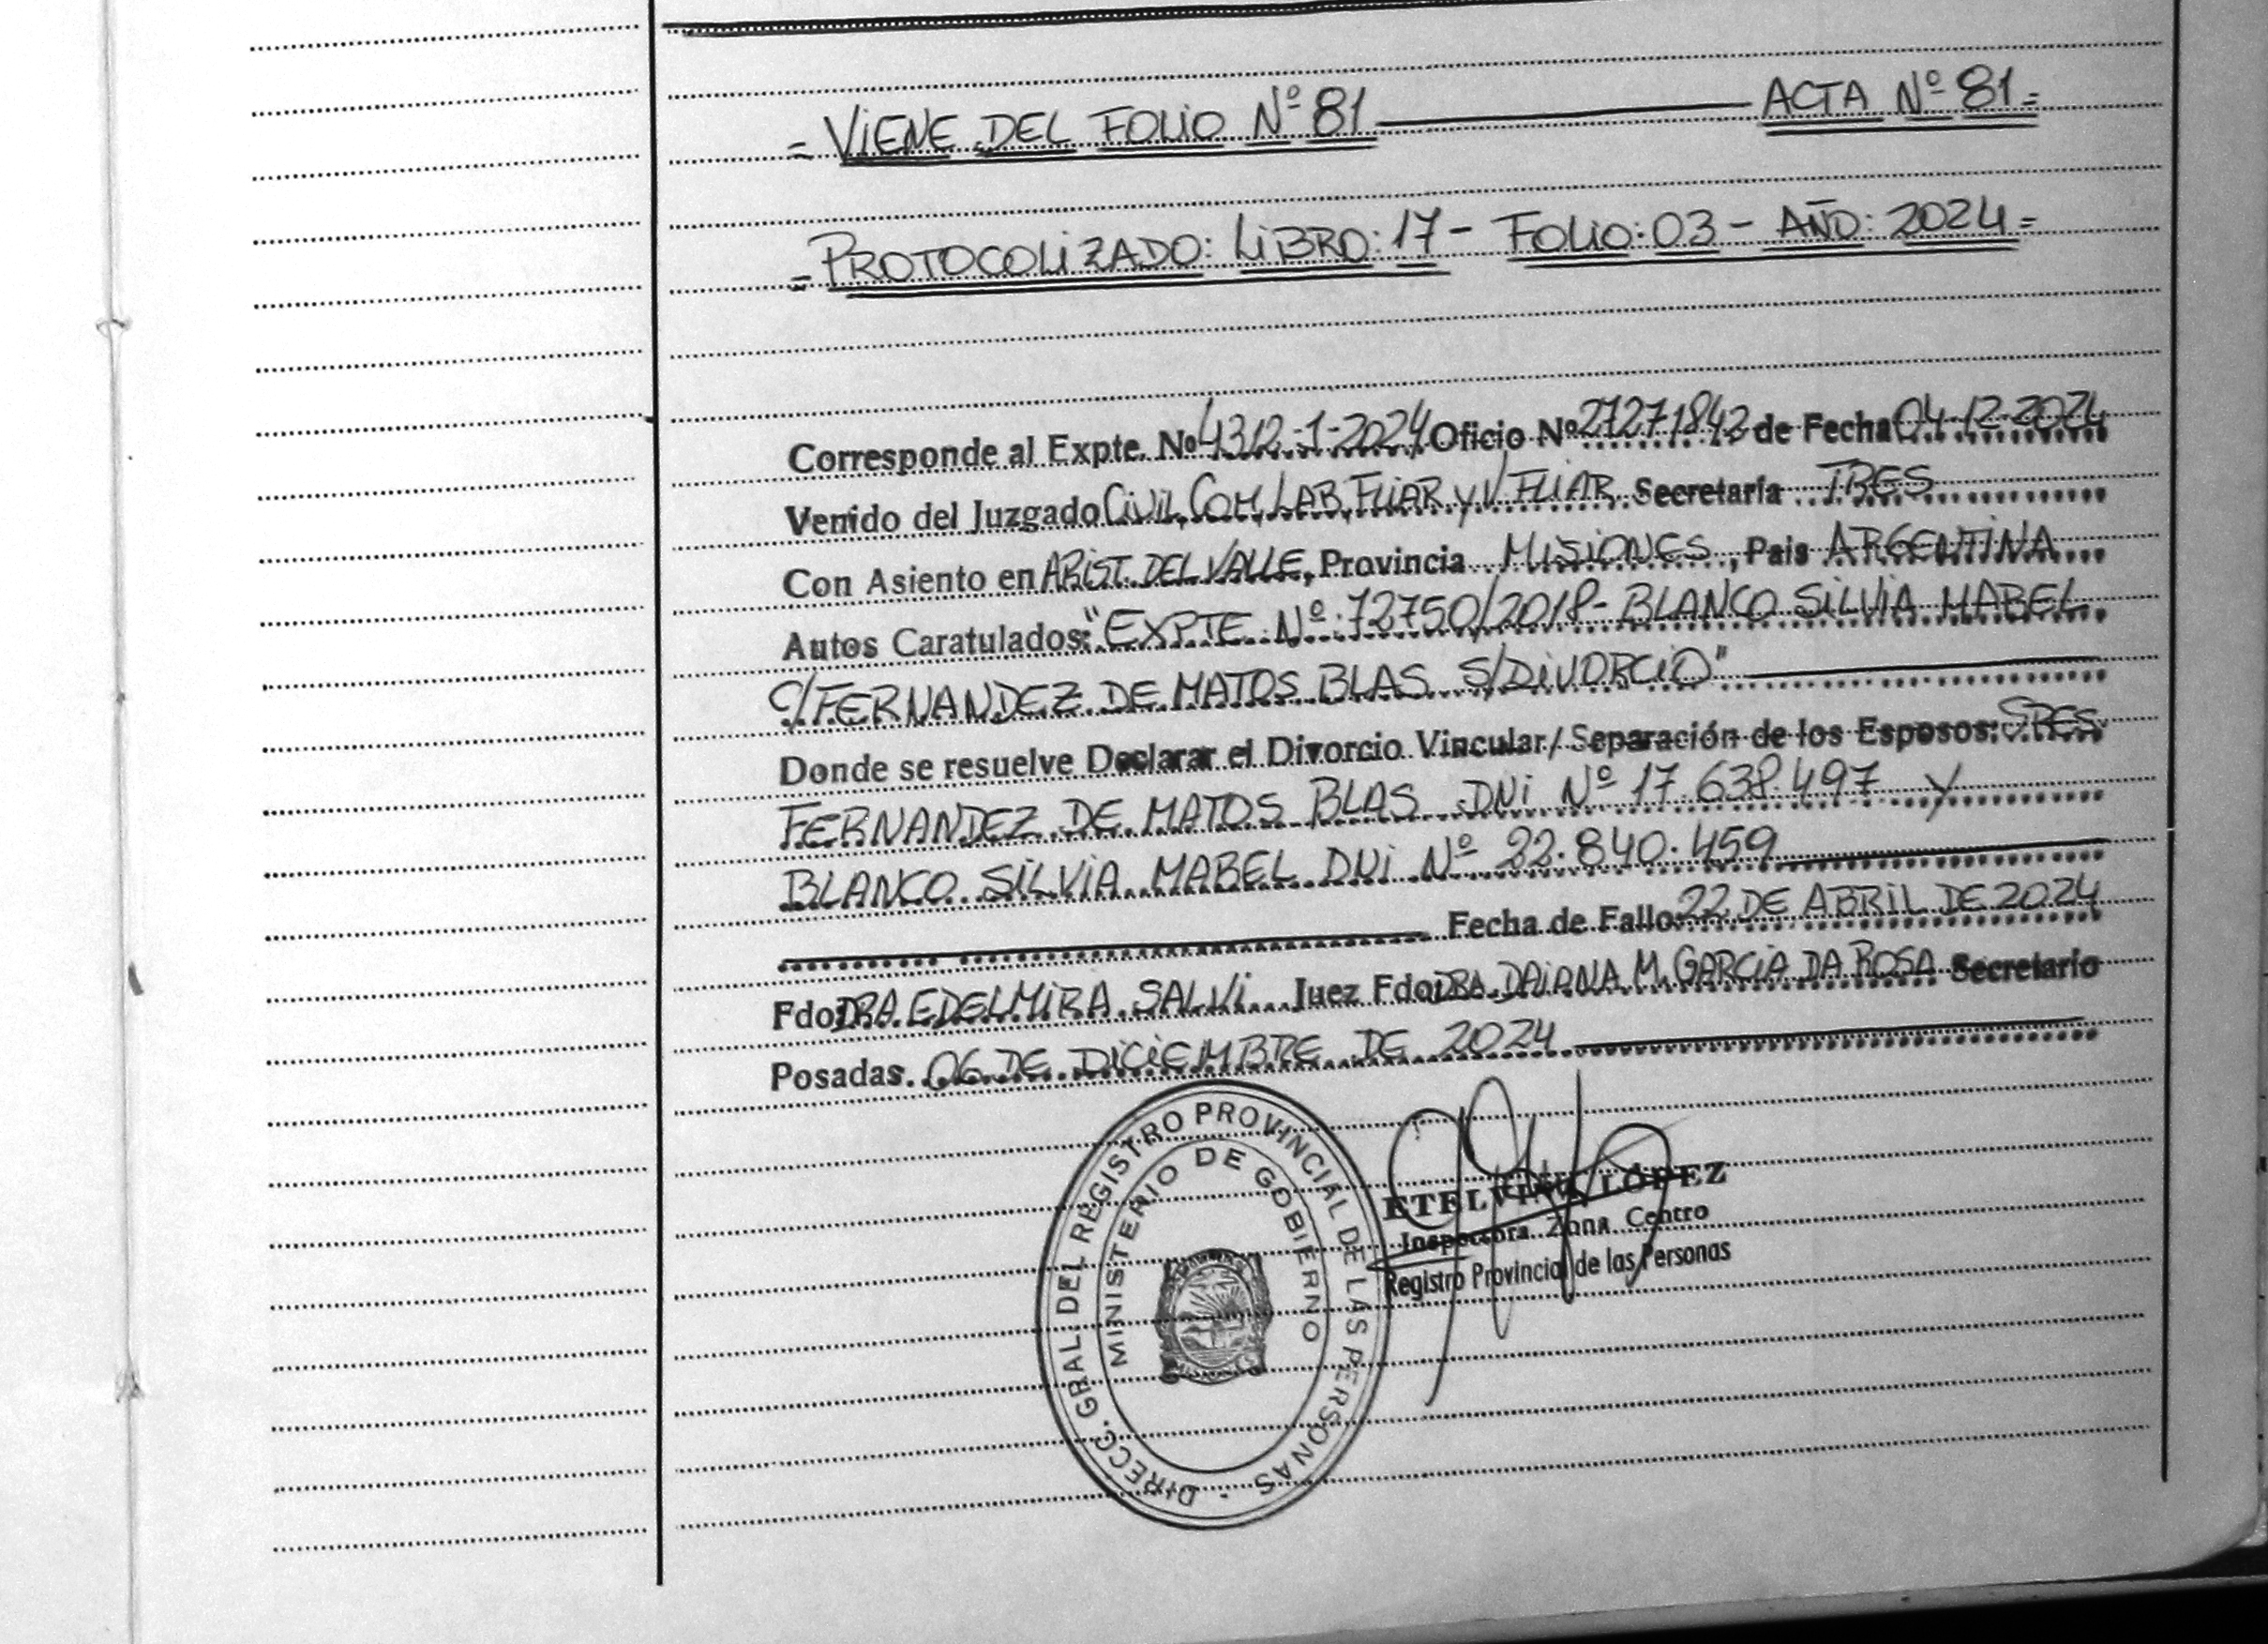 = VIENE DEL FOLIO Nº 81 ACTA Nº 81 =
= PROTOCOLIZADO: LIBRO: 17 - FOLIO: 03 - AÑO: 2024 =
Corresponde al Expte. Nº 4312-1-2024 Oficio Nº 27271842 de Fecha 04-12-2024
Venido del Juzgado CIVIL, COM, LAB, FLIAR y V FLIAR, Secretaría TRES
Con Asiento en ARIST. DEL VALLE, Provincia MISIONES, Pais ARGENTINA
Autos Caratulados: "EXPTE Nº 72750/2018- BLANCO SILVIA MABEL
C/ FERNANDEZ DE MATOS BLAS S/DIVORCIO"
Donde se resuelve Declarar el Divorcio Vincular/ Separación de los Esposos: SRES
FERNANDEZ DE MATOS BLAS DNI Nº 17.638.497 Y
BLANCO SILVIA MABEL DNI Nº 22.840.459
Fecha de Fallo: 22 DE ABRIL DE 2024
Fdo: DRA EDELMIRA SALVI Juez Fdo: DRA. DAIANA M. GARCIA DA ROSA Secretario
Posadas. 06 DE DICIEMBRE DE 2024
DIRECC. GRAL. DEL REGISTRO PROVINCIAL DE LAS PERSONAS
MINISTERIO DE GOBIERNO
ETELVINA LÓPEZ
Inspectora Zona Centro
Registro Provincial de las Personas